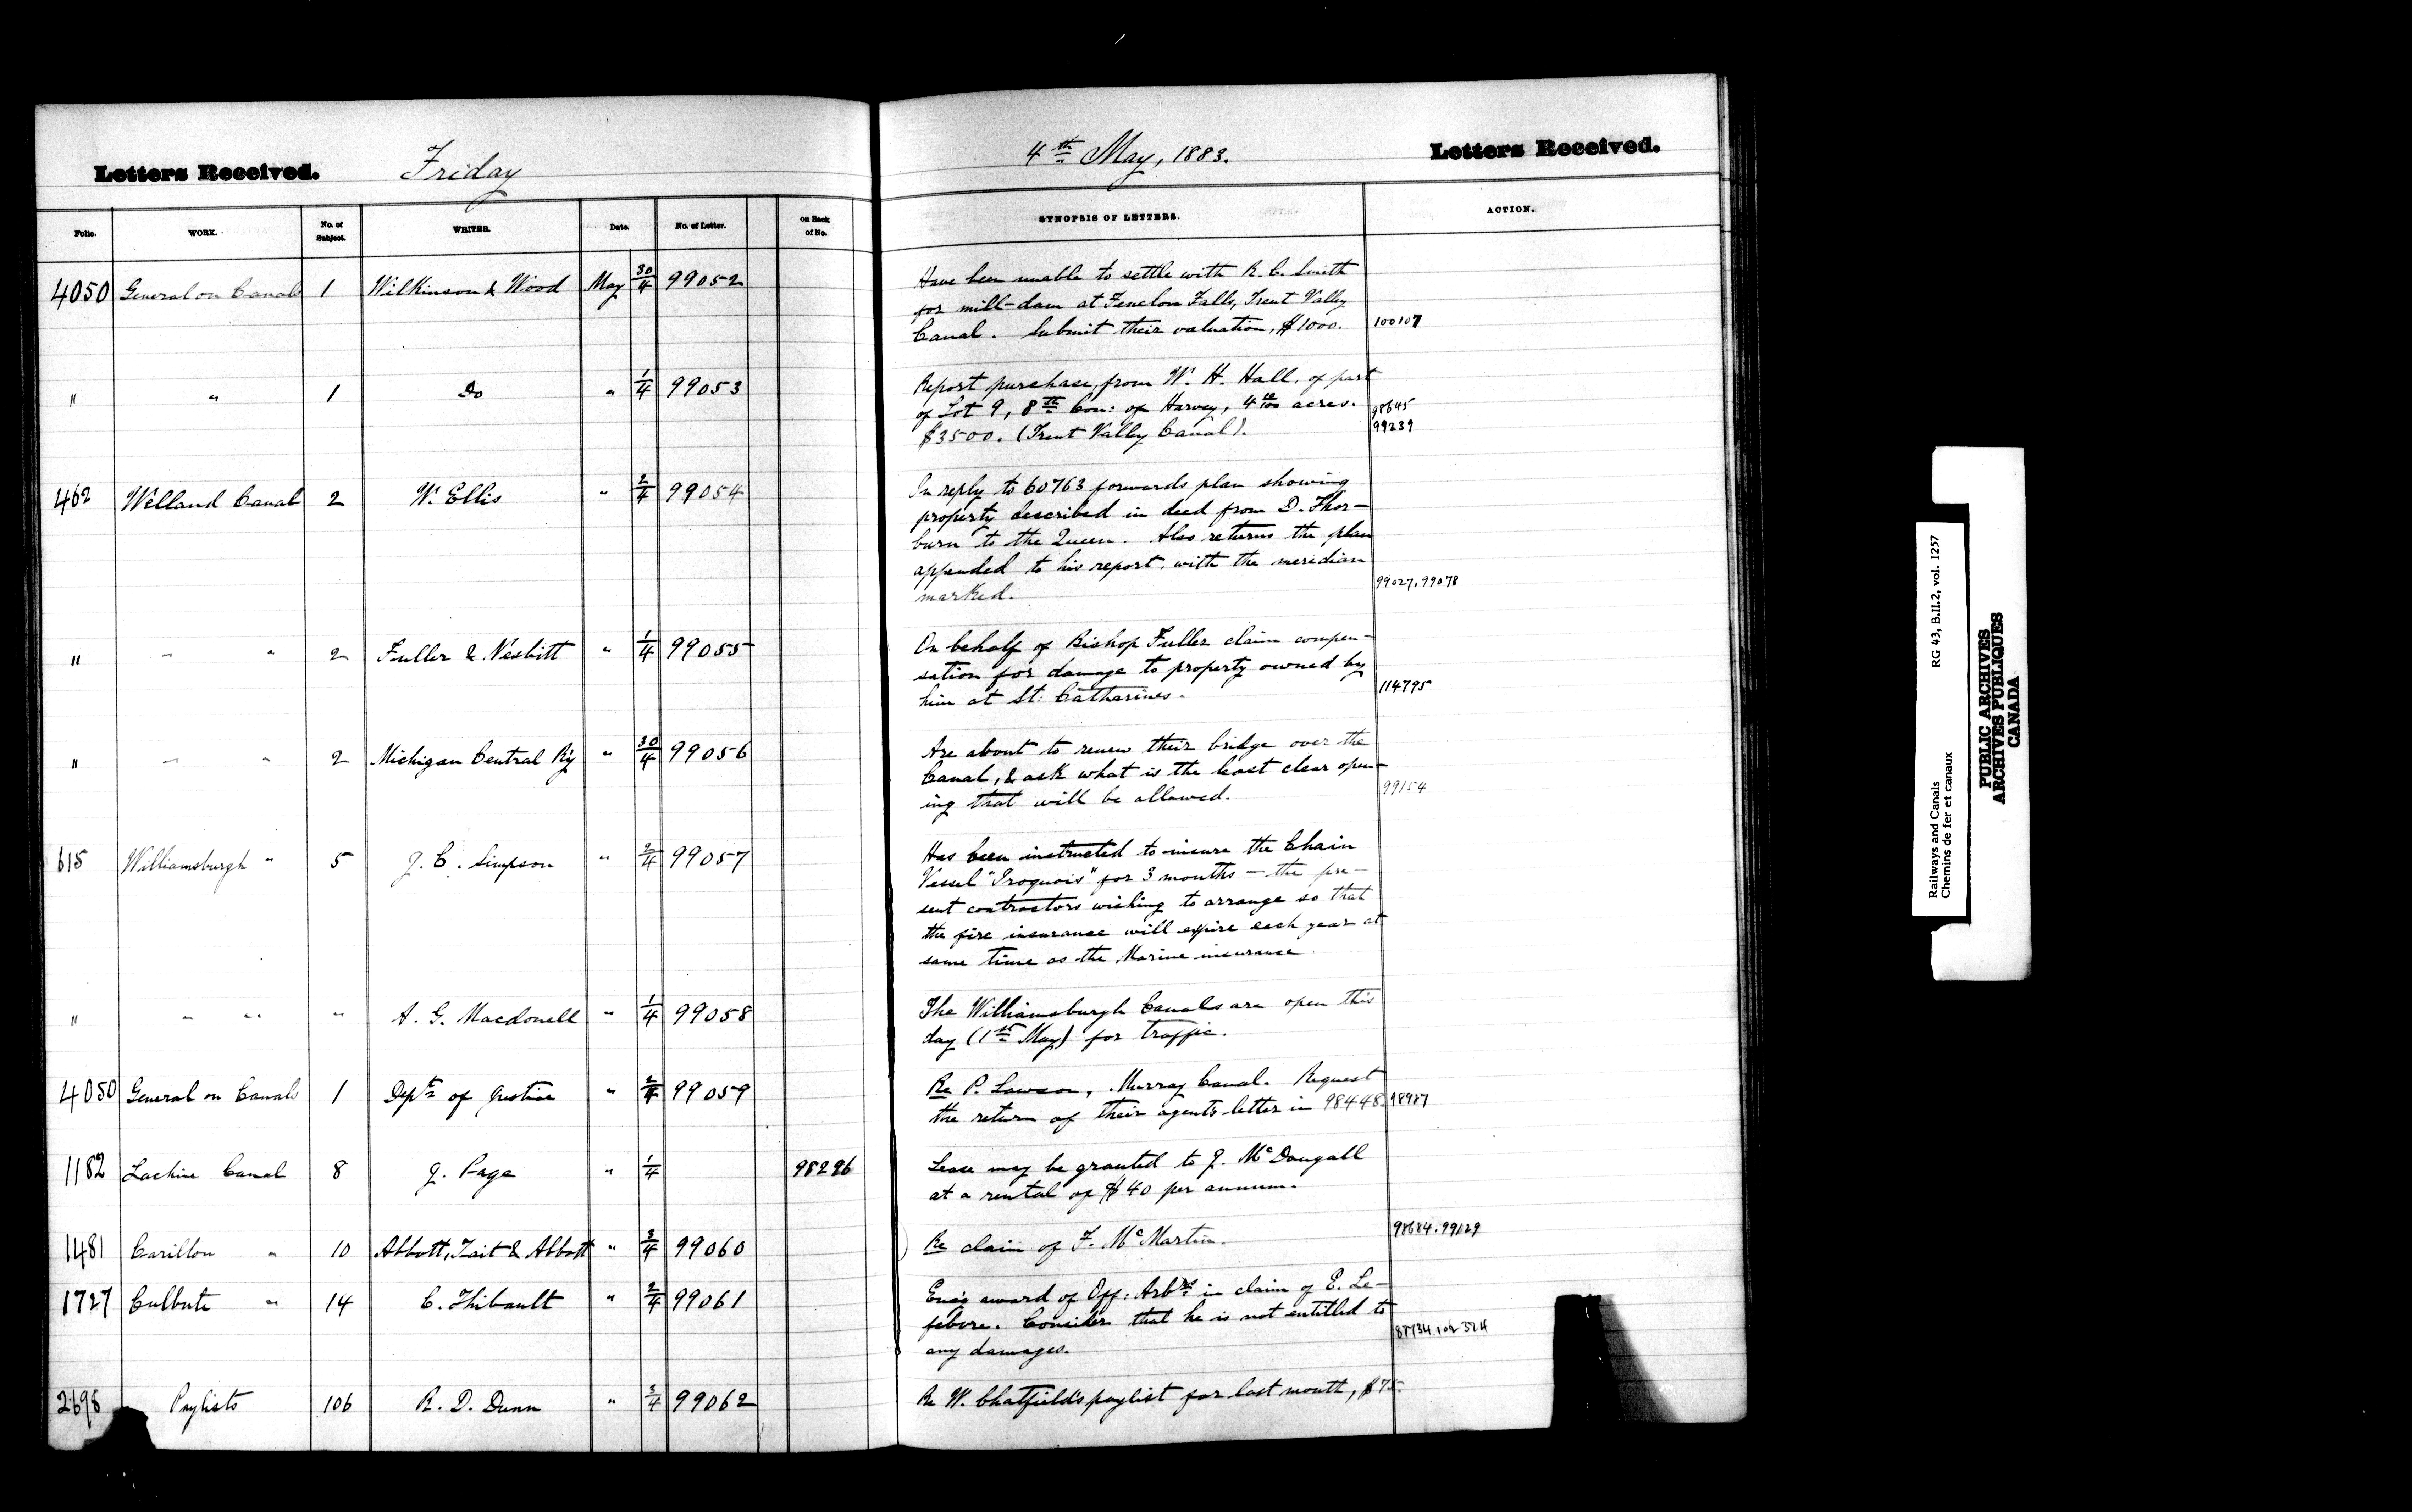 Letters Received. Friday 4th May, 1883. Letters Received.
Folio. WORK. No. of Subject. WRITER. Date. No. of Letter. on Back of No. SYNOPSIS OF LETTERS. ACTION.
4050 General on Canals 1 Wilkinson & Wood May 30/4 99052
Have been unable to settle with R. C. Smith
for mill-dam at Fenelon Falls, Trent Valley
Canal. Submit their valuation, $1000. 100107
" " 1 Do " 1/4 99053
Report purchase, from W. H. Hall, of part
of Lot 9, 8th Con: of Harvey, 4 10/100 acres. 98645
$3500. (Trent Valley Canal). 99239
462 Welland Canal 2 W. Ellis " 2/4 99054
In reply to 60763 forwards plan showing
property described in deed from D. Thor-
burn to the Queen. Also returns the plan
appended to his report, with the meridian
marked. 99027, 99078
" " " 2 Fuller & Nesbitt " 1/4 99055
On behalf of Bishop Fuller claim compen-
sation for damage to property owned by
him at St: Catharines. 114795
" " " 2 Michigan Central Ry " 30/4 99056
Are about to renew their bridge over the
Canal, & ask what is the least clear open-
ing that will be allowed. 99154
615 Williamsburgh " 5 J. C. Simpson " 2/4 99057
Has been instructed to insure the Chain
Vessel "Iroquois" for 3 months — the pre-
sent contractors wishing to arrange so that
the fire insurance will expire each year at
same time as the Marine insurance.
" " " " A. G. Macdonell " 1/4 99058
The Williamsburgh Canals are open this
day (1st May) for traffic.
4050 General on Canals 1 Dept of Justice " 2/4 99059
Re P. Lawson, Murray Canal. Request
the return of their agents letter in 98448. 98987
1182 Lachine Canal 8 J. Page " 1/4 98296
Lease may be granted to J. McDougall
at a rental of $40 per annum.
1481 Carillon " 10 Abbott, Tait & Abbott " 3/4 99060
Re claim of F. McMartin. 98684. 99129
1727 Culbute " 14 C. Thibault " 2/4 99061
Encg award of Off: Arbrs in claim of E. Le-
febvre. Consider that he is not entitled to
any damages.
2698 Paylists 106 R. D. Dunn " 3/4 99062
Re W. Chatfield's paylist for last month, $75.
Railways and Canals RG 43, B.II.2, vol. 1257
Chemins de fer et canaux
PUBLIC ARCHIVES
ARCHIVES PUBLIQUES
CANADA